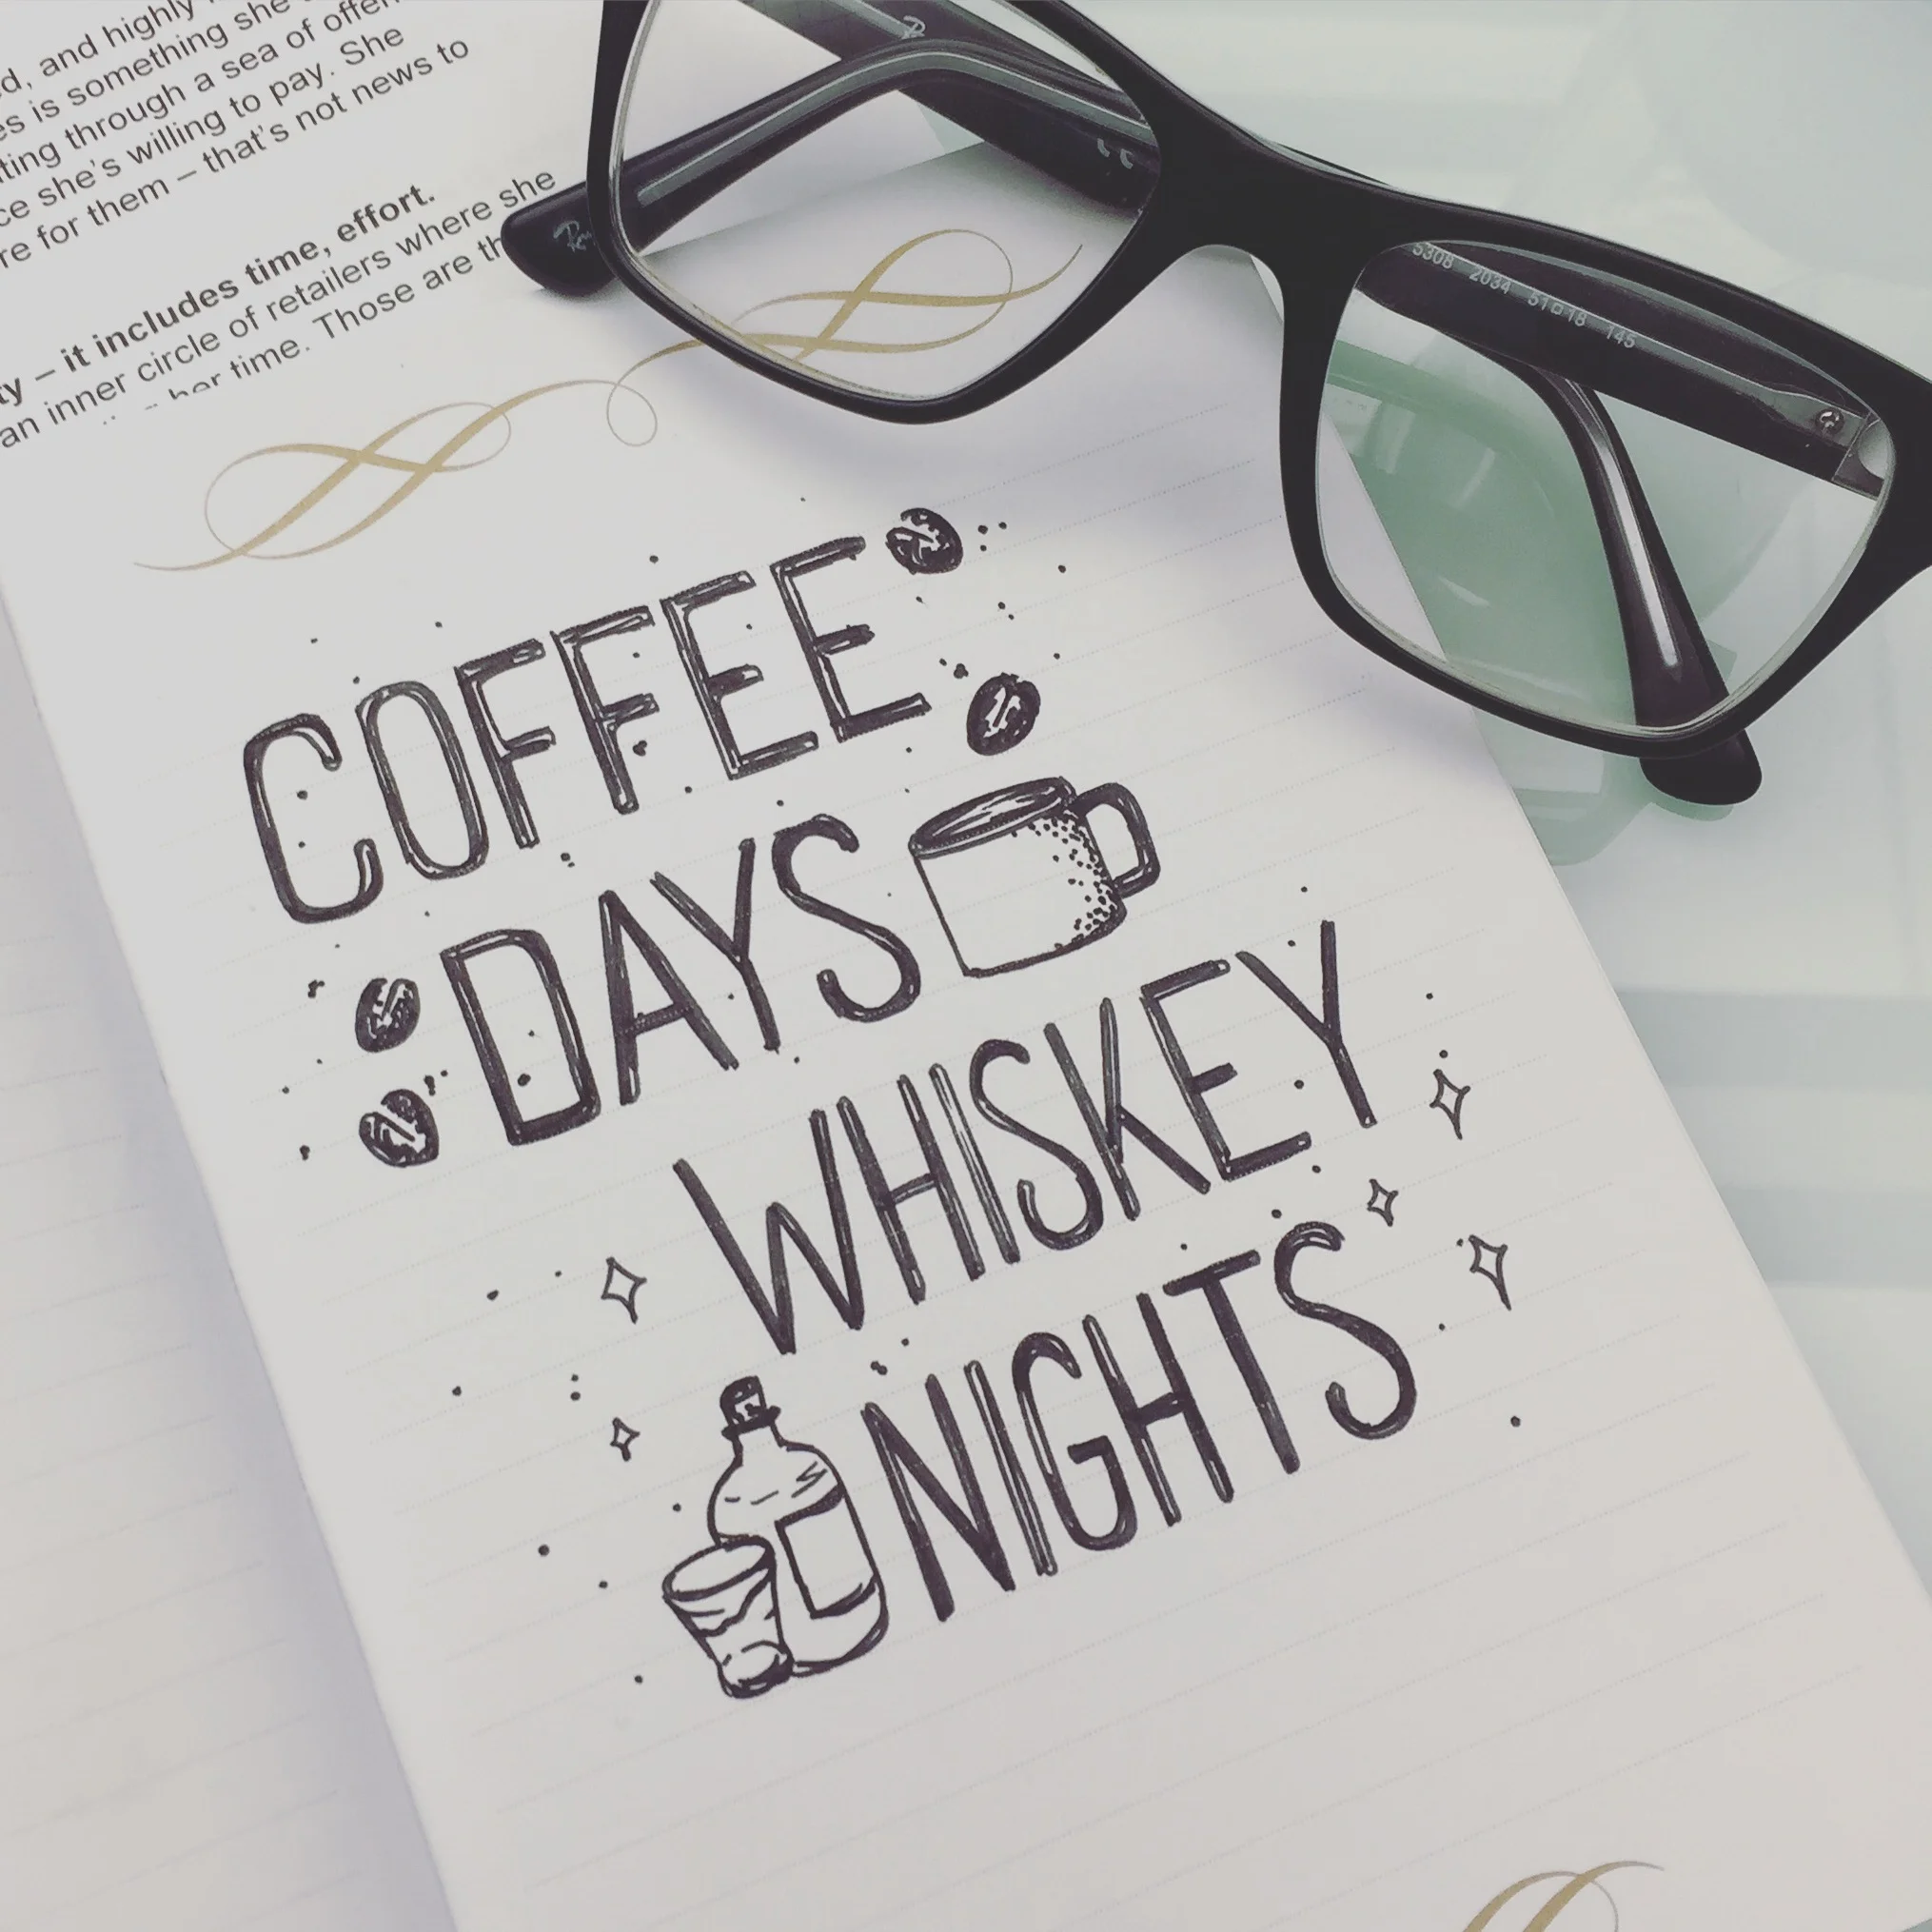 and highly
is something she
through a sea of
she's willing to pay. She
for them – that's not news to
– it includes time, effort.
an inner circle of retailers where she
her time. Those are
5308 2034 51□18 145
COFFEE
DAYS
WHISKEY
NIGHTS